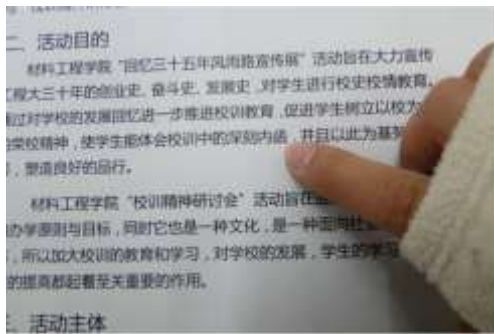 二、活动目的
材料工程学院“回忆三十五年风雨路宣传展”活动旨在大力宣传
工程大三十年的创业史、奋斗史、发展史,对学生进行校史校情教育。
通过对学校的发展回忆进一步推进校训教育,促进学生树立以校为
荣校精神,使学生能体会校训中的深刻内涵,并且以此为基
,塑造良好的品行。
材料工程学院“校训精神研讨会”活动旨在
办学原则与目标,同时它也是一种文化,是一种面向社
,所以加大校训的教育和学习,对学校的发展,学生的学习
的提高都起着至关重要的作用。
三、活动主体